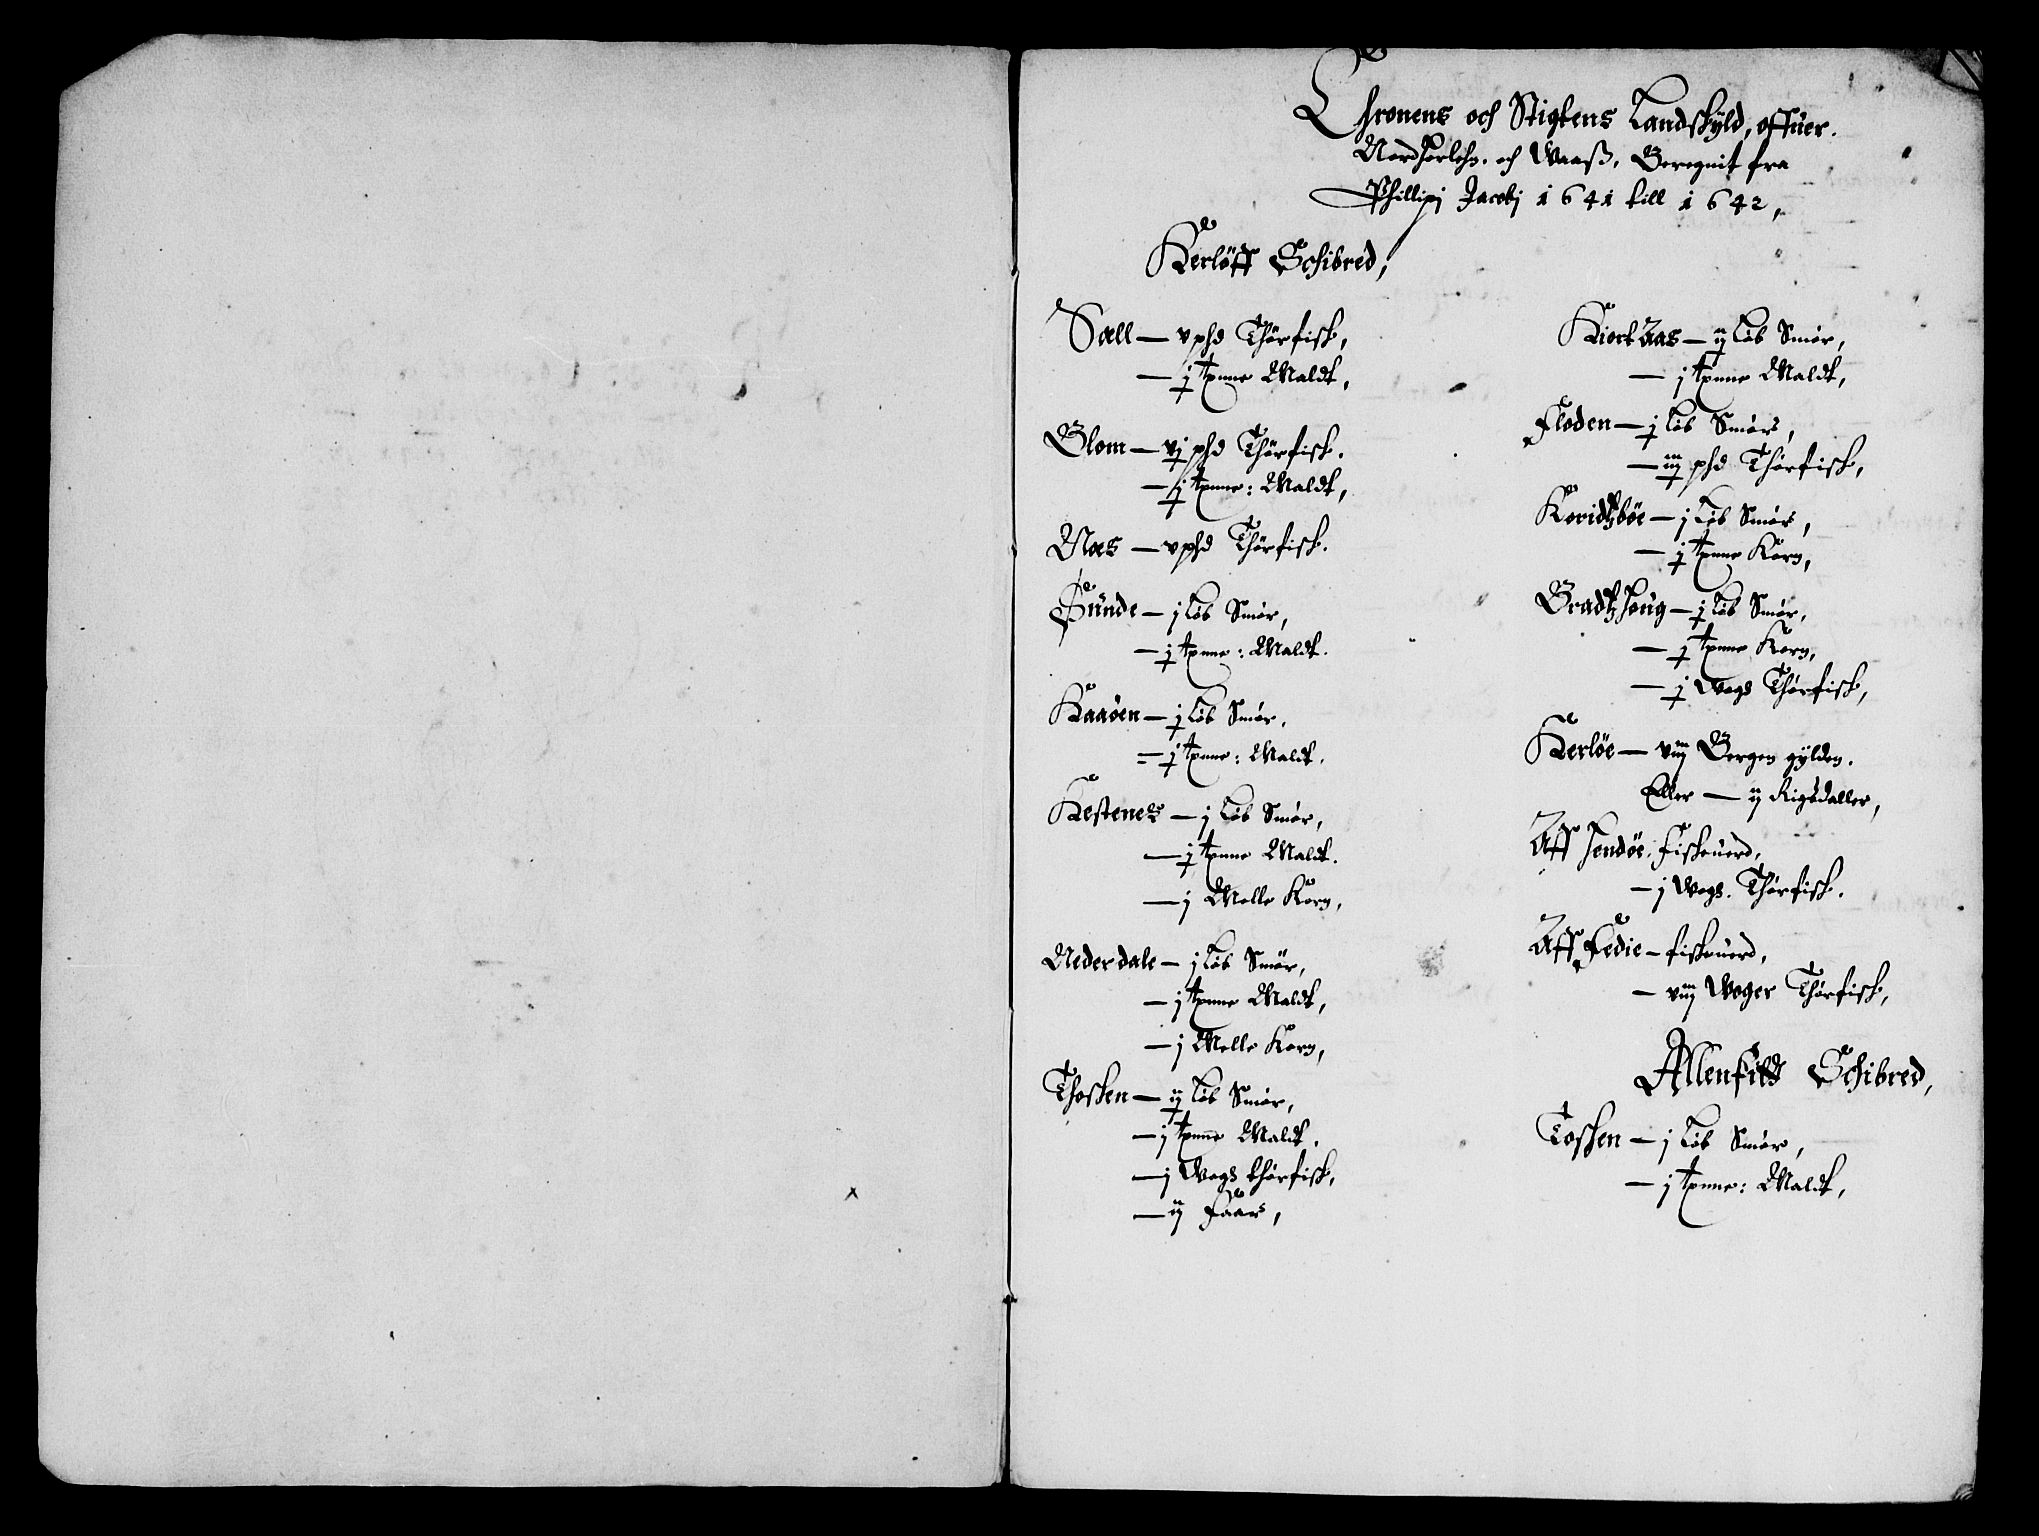 Chronens och Stigtens Landskyld, offuer.
Nordhorlehn. och Waaß, Beregnit fra
Phillipj Jacobj 1641 till 1642,
Kerlöff Schibred,
Sæll — v phd Thörfisk,
— j tønne Maldt,
Blom — vj phd Thörfisk.
— j tønne: Maldt,
Næs — v phd Thörfisk.
Sünde — j løb Smör,
— j tønne: Maldt.
Kaaöen — j løb Smör,
— j tønne: Maldt.
Kestenes — j løb Smör,
— j tønne Maldt.
— j Melle Korn,
Nederdale — j løb Smör,
— j tønne Maldt,
— j Melle Korn,
Thosken — ij løb Smör,
— j tønne Maldt.
— j Wogh thörfisk,
— ij Faar,
Kiort Aas — ij løb Smör,
— j tønne Maldt,
Floden — j løb Smör,
— iij phd Thörfisk,
Koridtzböe — j løb Smör,
— j tønne Korn,
Bradtzhoug — j løb Smör,
— j tønne Korn,
— j Wogh Thörfisk,
Kerlöe — viij Bergen gylden.
Eller — ij Rigsdaller,
Aff Hendöe, fiskeuerd,
— j Wogh. Thörfisk.
Aff Fedie — fiskeuerd,
— viij Woger Thörfisk,
Allenfitz Schibred,
Tosken — j løb Smör,
— j tønne: Maldt,